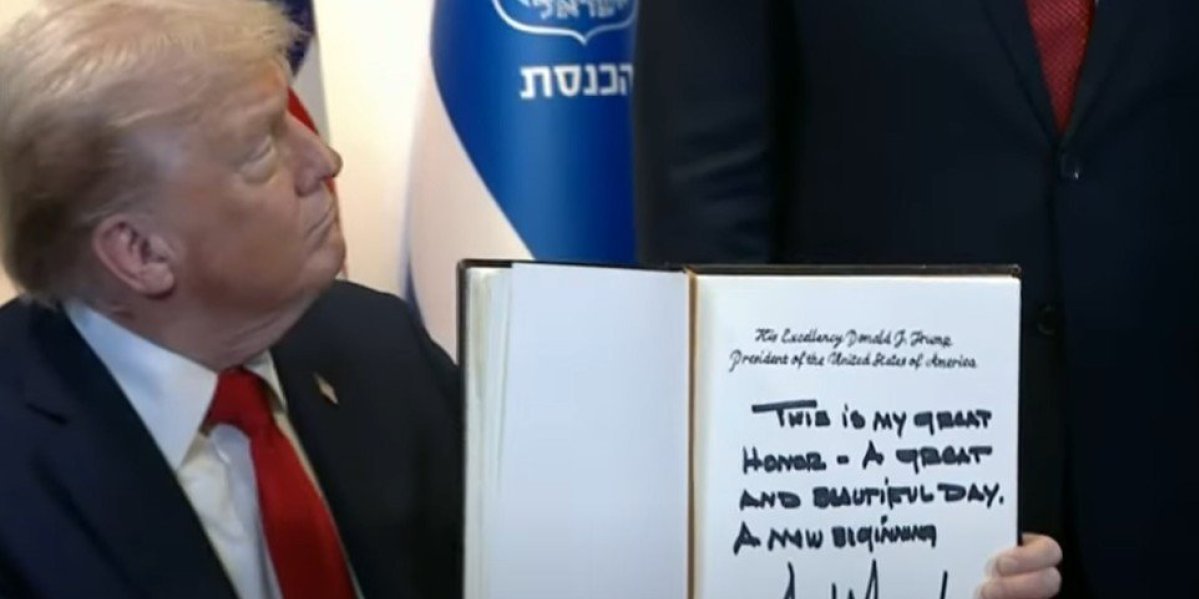 ישראל
הכנסת
His Excellency Donald J. Trump
President of the United States of America
THIS IS MY GREAT
HONOR - A GREAT
AND BEAUTIFUL DAY.
A NEW BIGINNING